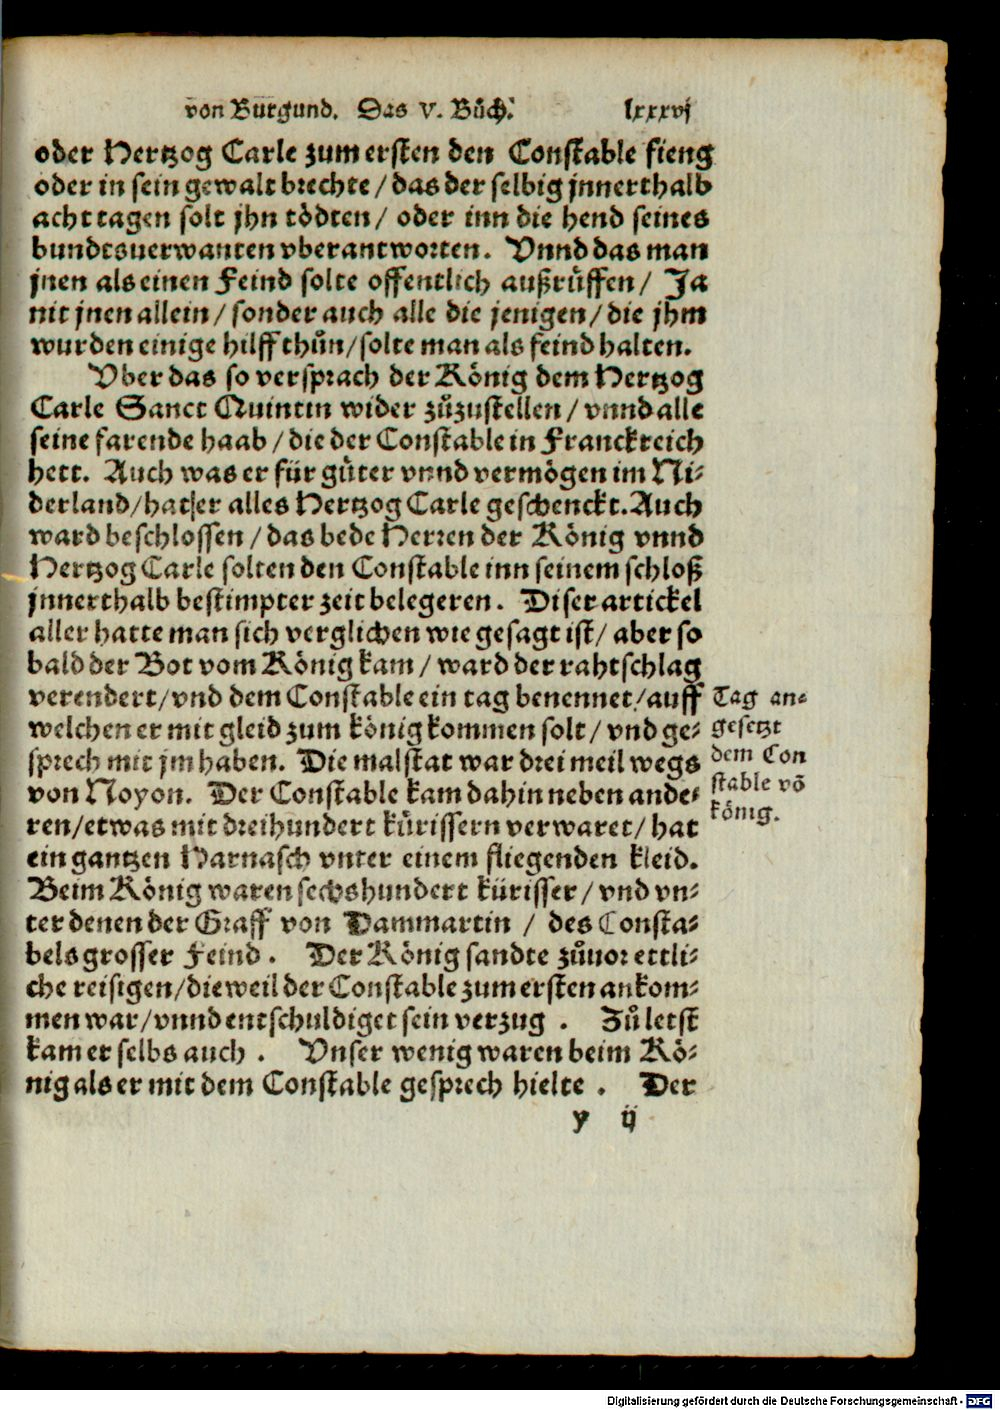 von Burgund. Das V. Bůch. lxxxvj
oder Hertzog Carle zum ersten den Constable fieng
oder in sein gewalt brechte / das der selbig jnnerthalb
acht tagen solt jhn tödten / oder inn die hend seines
bundtsuerwanten vberantworten. Vnnd das man
jnen als einen Feind solte offentlich außrůffen / Ja
nit jnen allein / sonder auch alle die jenigen / die jhm
wurden einige hilff thůn / solte man als feind halten.
Vber das so versprach der König dem Hertzog
Carle Sanct Quintin wider zůzustellen / vnnd alle
seine farende haab / die der Constable in Franckreich
hett. Auch was er für gůter vnnd vermögen im Ni-
derland / hat er alles Hertzog Carle geschenckt. Auch
ward beschlossen / das bede Herren der König vnnd
Hertzog Carle solten den Constable inn seinem schloß
jnnerthalb bestimpter zeit belegeren. Diser artickel
aller hatte man sich verglichen wie gesagt ist / aber so
bald der Bot vom König kam / ward der rahtschlag
verendert / vnd dem Constable ein tag benennet / auff
welchen er mit gleid zum könig kommen solt / vnd ge-
sprech mit jm haben. Die malstat war drei meil wegs
von Noyon. Der Constable kam dahin neben ande-
ren / etwas mit dreihundert kürissern verwaret / hat
ein gantzen Harnasch vnter einem fliegenden kleid.
Beim König waren sechshundert kürisser / vnd vn-
ter denen der Graff von Dammartin / des Consta-
bels grosser Feind. Der König sandte zůuor ettli-
che reisigen / dieweil der Constable zum ersten ankom-
men war / vnnd entschuldiget sein verzug. Zů letst
kam er selbs auch. Vnser wenig waren beim Kö-
nig als er mit dem Constable gesprech hielte. Der
y ij
Tag an-
gesetzt
dem Con
stable võ
könig.
Digitalisierung gefördert durch die Deutsche Forschungsgemeinschaft - DFG